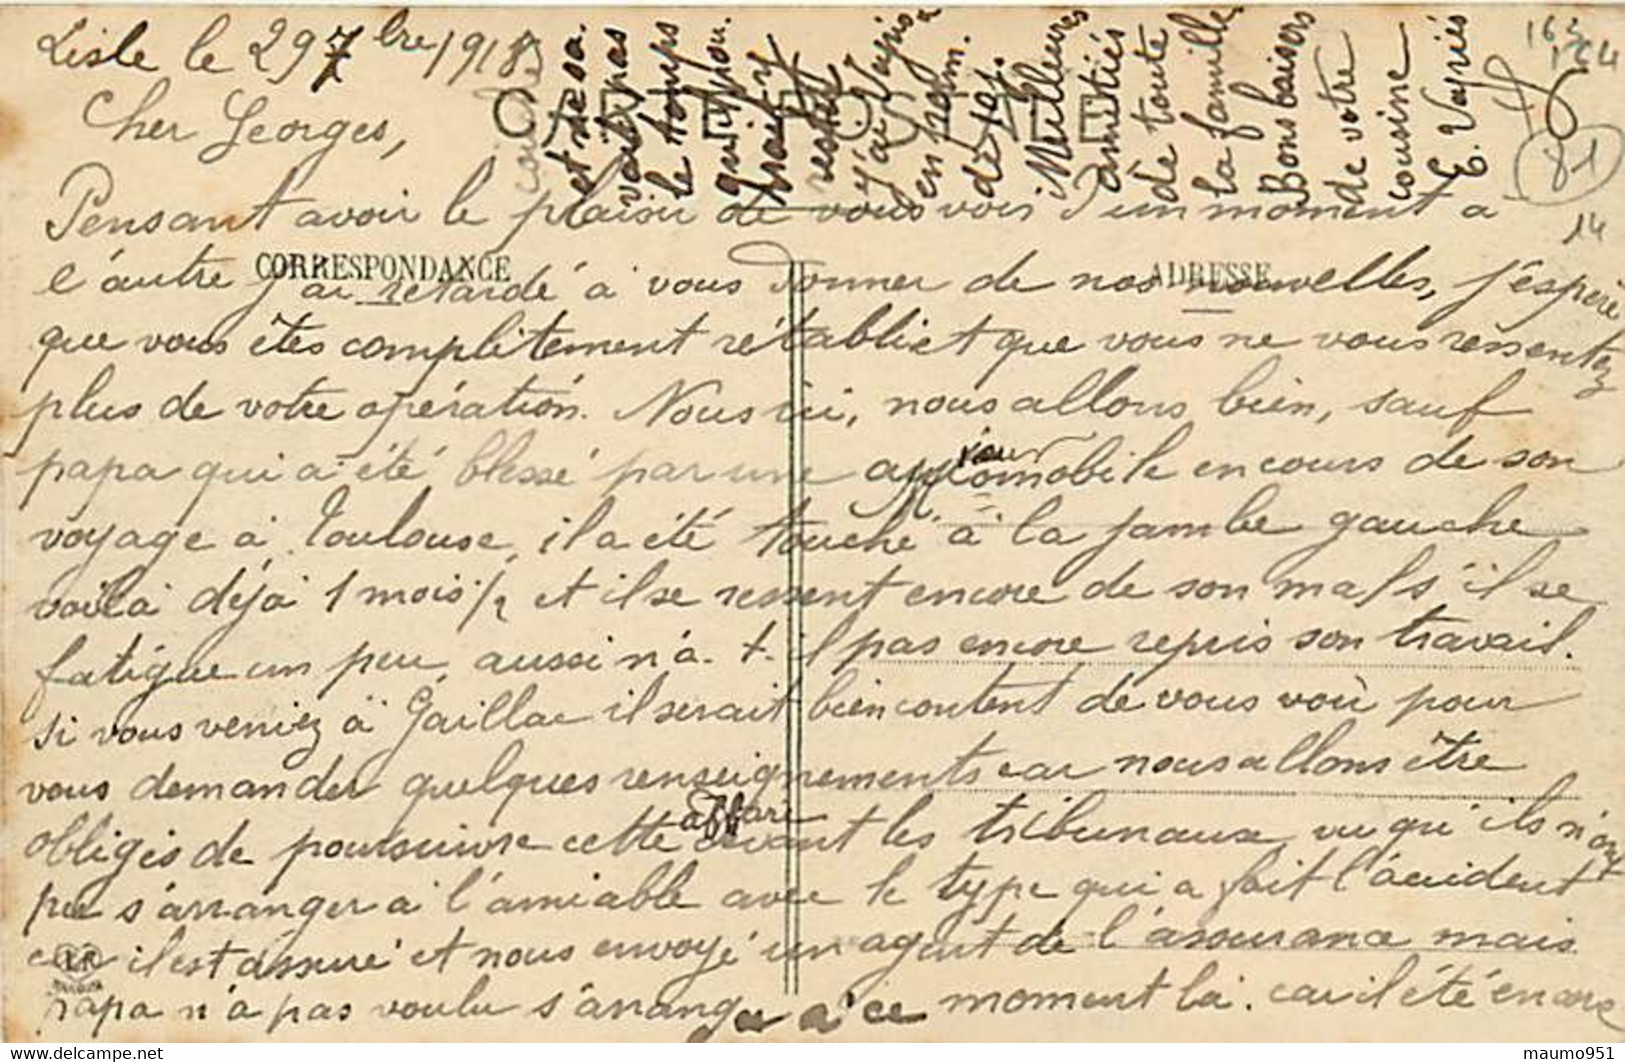 Lisle le 29 7bre 1918
Cher Georges,
CARTE POSTALE
CORRESPONDANCE
ADRESSE
Pensant avoir le plaisir de vous voir d'un moment a
l'autre j'ai retardé à vous donner de nos nouvelles, j'espère
que vous êtes complètement rétabli et que vous ne vous ressentez
plus de votre opération. Nous ici, nous allons bien, sauf
papa qui a été blessé par une automobile en cours de son
voyage à Toulouse, il a été touché à la jambe gauche
voilà déjà 1 mois 1/2 et il se ressent encore de son mal s'il se
fatigue un peu, aussi n'a-t-il pas encore repris son travail.
Si vous veniez à Gaillac il serait bien content de vous voir pour
vous demander quelques renseignements car nous allons être
obligés de poursuivre cette affaire devant les tribunaux, vu qu'ils n'ont
pu s'arranger à l'amiable avec le type qui a fait l'accident
car il est assuré et nous envoyé un agent de l'assurance mais
papa n'a pas voulu s'arranger a ce moment là. car il été encore
couché
et ne sa
vait pas
le temps
qu'il pou
vait y
rester
j'ai Vapris
en perm.
de 20 j.
Meilleures
amitiés
de toute
la famille
Bons baisers
de votre
cousine
E. Vapriés
163
164
81
14
maumo951